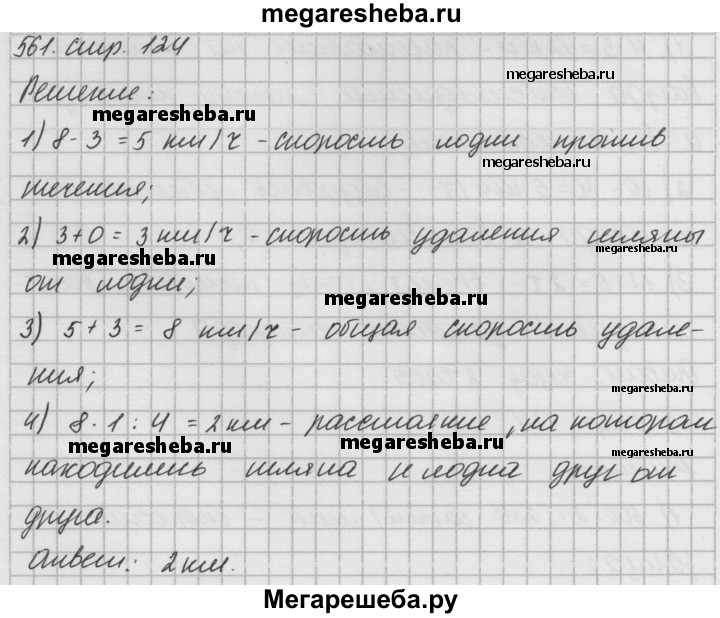 megaresheba.ru
561. стр. 124
megaresheba.ru
Решение:
megaresheba.ru
1) 8 - 3 = 5 км/ч - скорость лодки против
megaresheba.ru
течения;
2) 3 + 0 = 3 км/ч - скорость удаления шляпы
megaresheba.ru
megaresheba.ru
от лодки;
megaresheba.ru
3) 5 + 3 = 8 км/ч - общая скорость удале-
ния;
megaresheba.ru
4) 8 · 1 : 4 = 2 км - расстояние, на котором
megaresheba.ru
megaresheba.ru
megaresheba.ru
находились шляпа и лодка друг от
друга.
Ответ: 2 км.
Мегарешеба.ру